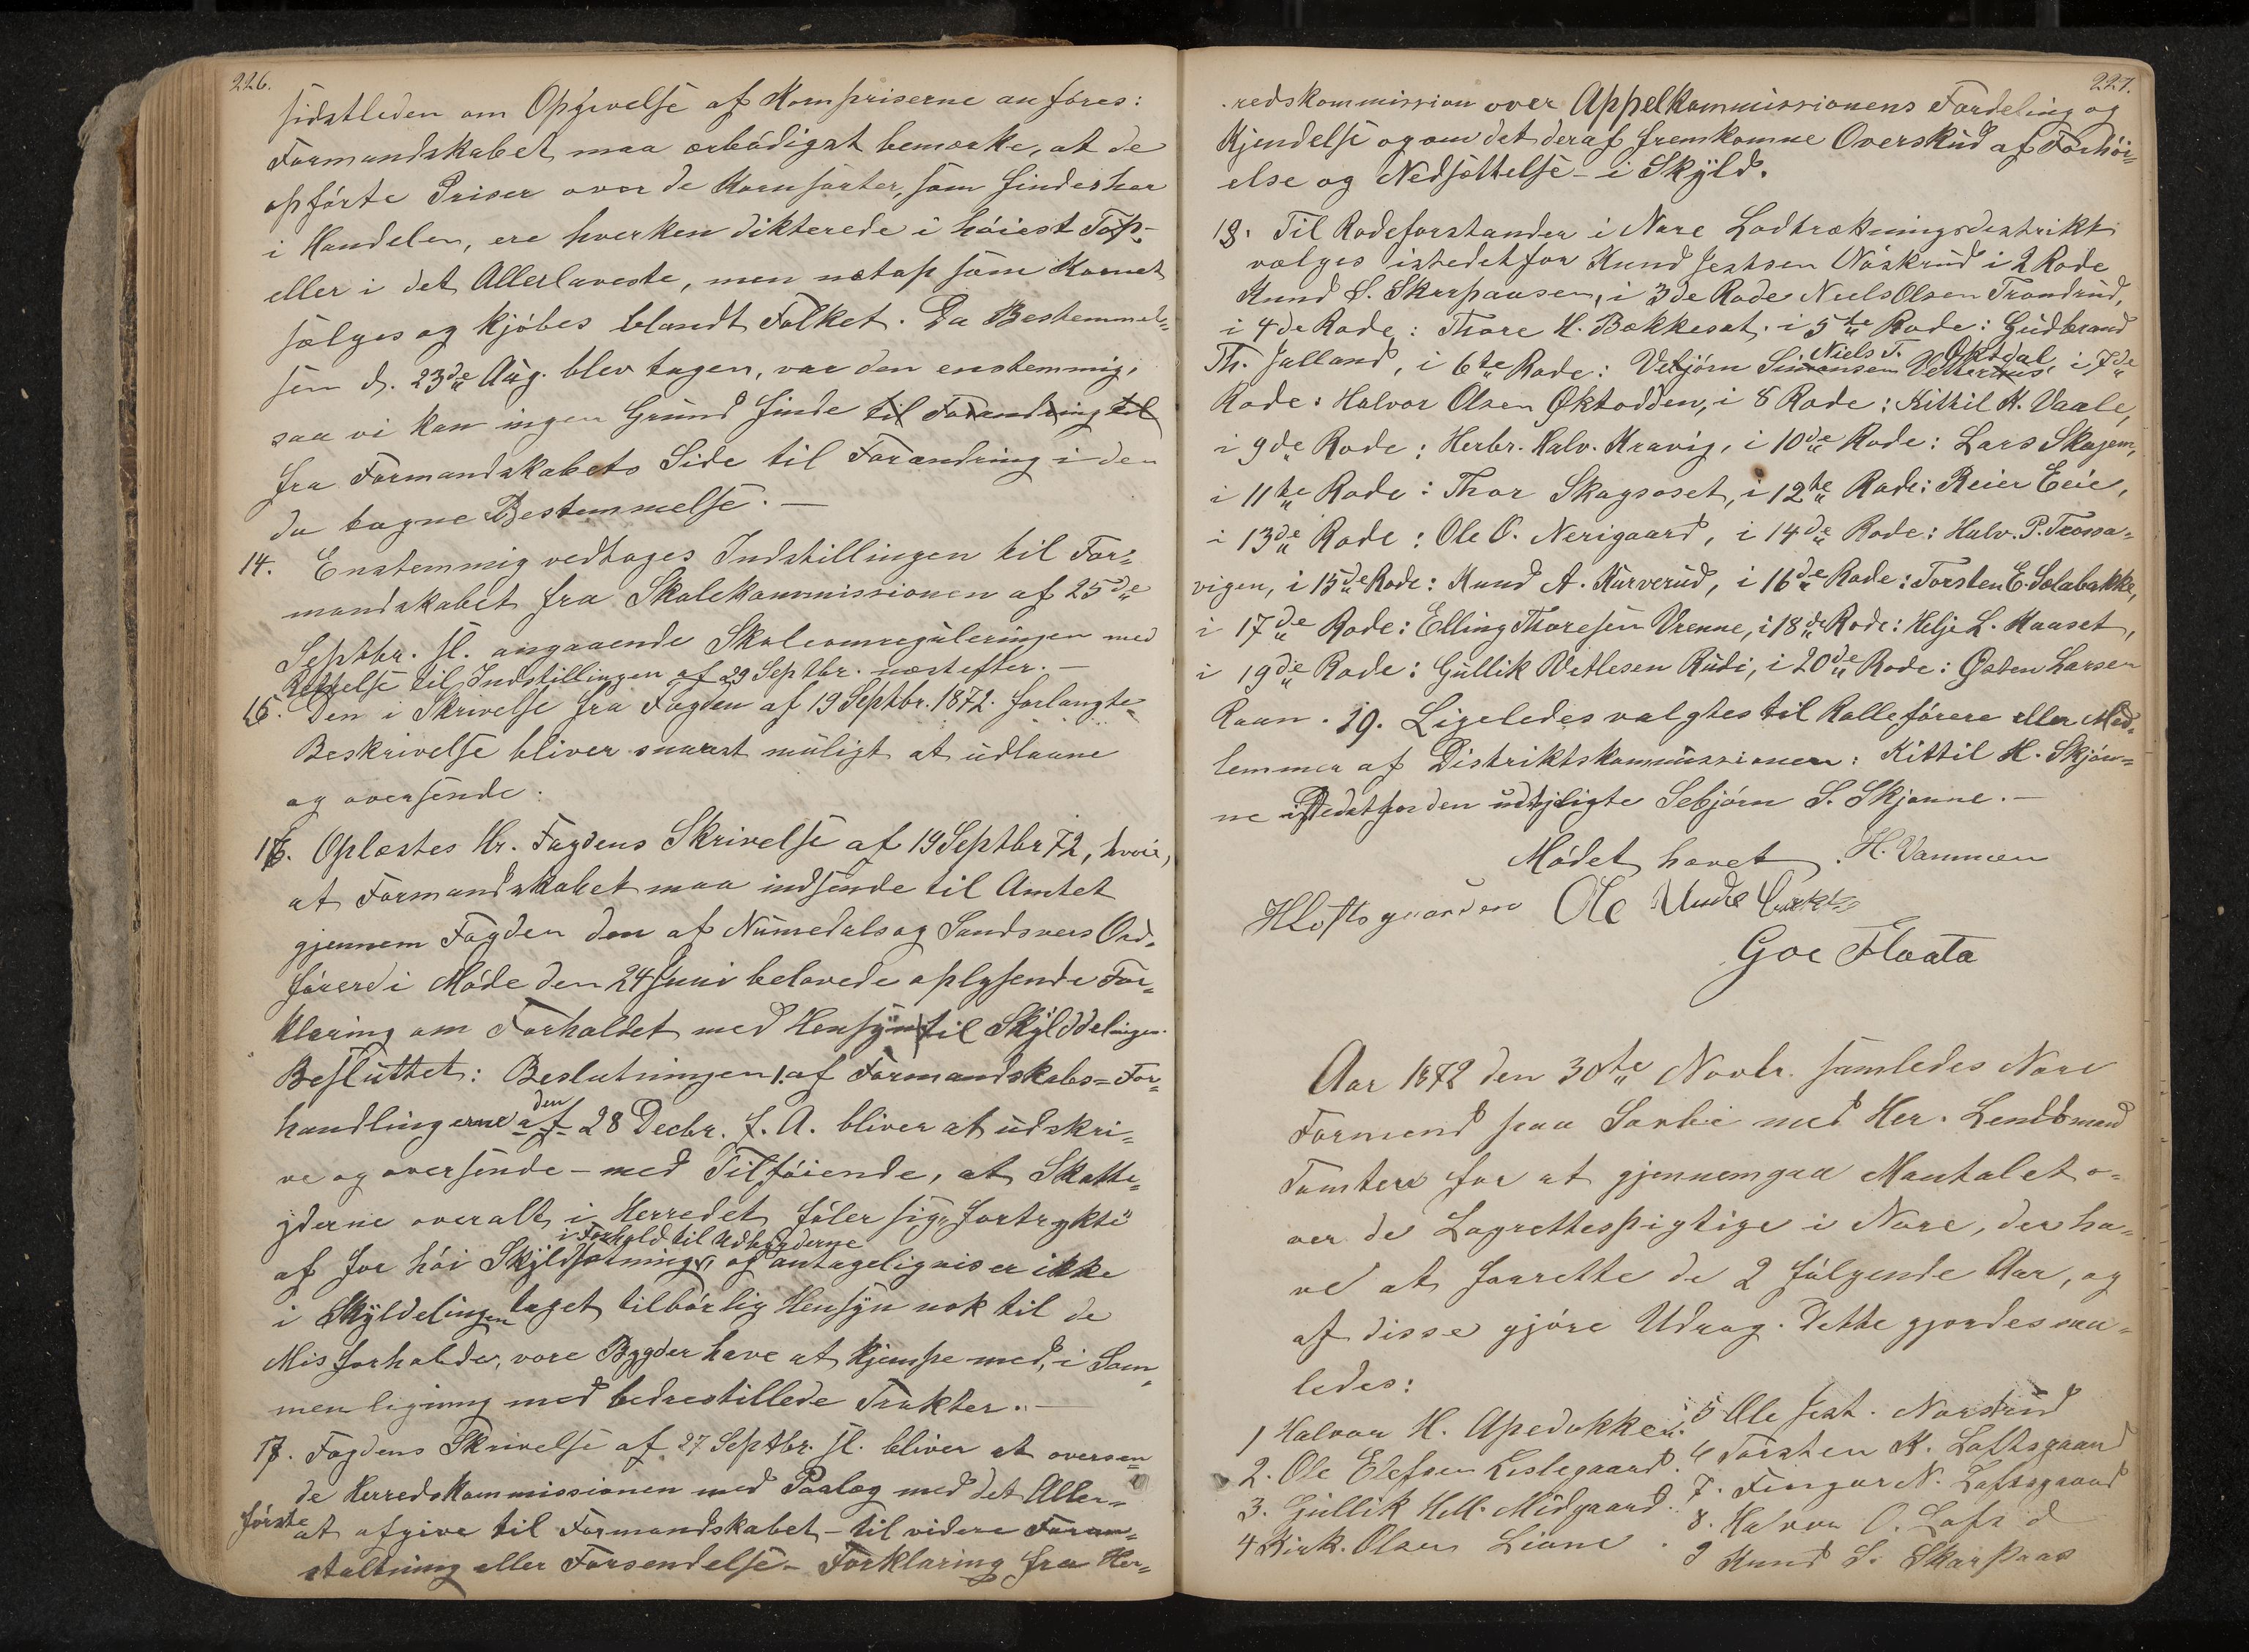 226.
sidstleden om Opgivelse af Kornpriserne anføres:
Formandskabet maa ærbødigst bemærke, at de
opførte Priser over de Kornsorter, som findes her
i Handelen, ere hverken dikterede i høiest Top-
eller i det Allerlaveste, men netop som Kornet
sælges og kjøbes blandt Folket. Da Bestemmel=
sen d. 23de Aug. blev tagen, var den enstemmig,
saa vi kan ingen Grund finde til Forandring til
fra Formandskabets Side til Forandring i den
da tagne Bestemmelse. —
14. Enstemmig vedtages Indstillingen til For=
mandskabet fra Skolekommissionen af 25de
Septbr. sl. angaaende Skoleomreguleringen med
Rettelse til Indstillingen af 29 Septbr. næstefter. —
15. Den i Skrivelse fra Fogden af 19 Septbr. 1872 forlangte
Beskrivelse bliver snarest muligt at udlaane
og oversende.
16. Oplæstes Hr. Fogdens Skrivelse af 19 Septbr 72, hvori,
at Formandskabet maa indsende til Amtet
gjennem Fogden den af Numedals og Sandsværs Ord=
førere i Møde den 24 Juni belovede oplysende For=
klaring om Forholdet med Hensyn til Skylddelingen.
Besluttet: Beslutningen 1. af Formandskabs=For=
handlingerne af den 28 Decbr. f. A. bliver at udskri=
ve og oversende – med Tilføiende, at Skatte=
yderne overalt i Herredet føler sig fortrykte
i Forhold til Udbygderne
af for høi Skyldsætning, og antageligvis er ikke
i Skyldelingen taget tilbørlig Hensyn nok til de
Misforholde, vore Bygder have at kjempe med, i Sam=
menligning med bedrestillede Trakter. —
17. Fogdens Skrivelse af 27 Septbr. sl. bliver at oversen=
de Herredskommissionen med Paalæg med det Aller=
første at afgive til Formandskabet – til videre Foran=
staltning eller Forsendelse – Forklaring fra Her=
227.
redskommission over Appelkommissionens Fordeling og
Kjendelse og om det deraf fremkomne Overskud af Forhøi=
else og Nedsættelse – i Skyld.
18. Til Rodeforstander i Nore Lodtrækningsdistrikt
vælges istedetfor Knud Jestsen Nøskrud i 2 Rode
Knud S. Skarpaasen, i 3de Rode Niels Olsen Trondrud,
i 4de Rode: Thore H. Bækkeset. i 5te Rode: Gudbrand
Th. Jalland, i 6te Rode: Vebjørn Simensen Vetterhus Niels T. Økdal, i 7de
Rode: Halvor Olsen Øktodden, i 8 Rode: Kittil K. Vaale,
i 9de Rode: Herbr. Halv. Kravig, i 10de Rode: Lars Skajem,
i 11te Rode: Thor Skagsoset, i 12te Rode: Reier Eeie,
i 13de Rode: Ole O. Nerigaard, i 14de Rode: Halv. P. Trossa=
vigen, i 15de Rode: Knud A. Kurverud, i 16de Rode: Torsten E. Solabakke,
i 17de Rode: Elling Thoresen Vrenne, i 18de Rode: Helje L. Kaaset,
i 19de Rode: Gullik Vetlesen Rudi, i 20de Rode: Østen Larsen
Raan. 19. Ligeledes valgtes til Rolleførere eller Med=
lemmer af Distriktskommissionen: Kittil H. Skjøn=
ne istedetfor den udsjeligte Sebjørn S. Skjønne. —
Mødet hævet. H. Vammen
H Loftsgaarden Ole
Goe Flaata
Aar 1872 den 30te Novbr. samledes Nore
Formend paa Sørbø med Her. Lensmand
Tomter for at gjennemgaa Mantalet o=
ver de Lagrettespigtige i Nore, der ha=
ve at forrette de 2 følgende Aar, og
af disse gjøre Udrag. Dette gjordes saa=
ledes:
1 Halvor H. Apedokken.
2. Ole Elefsen Lislegaard.
3. Gullik Hell. Midgaard.
4 Kirk. Olsen Liane.
5 Ole Jest. Norstrud
6 Torsten K. Loftsgaard
7. Fingar N. Loftsgaard
8. Halvor O. Lofs d
9 Knud S. Skarpaas